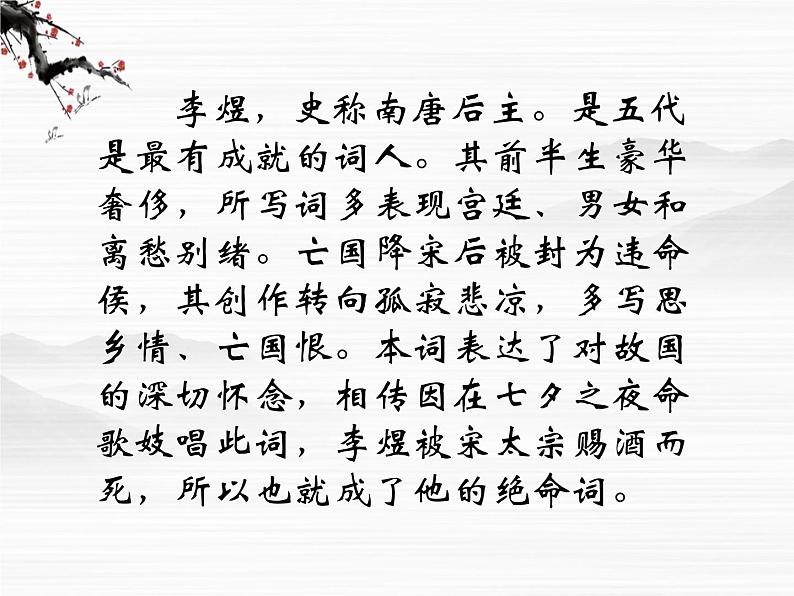 李煜，史称南唐后主。是五代
是最有成就的词人。其前半生豪华
奢侈，所写词多表现宫廷、男女和
离愁别绪。亡国降宋后被封为违命
侯，其创作转向孤寂悲凉，多写思
乡情、亡国恨。本词表达了对故国
的深切怀念，相传因在七夕之夜命
歌妓唱此词，李煜被宋太宗赐酒而
死，所以也就成了他的绝命词。